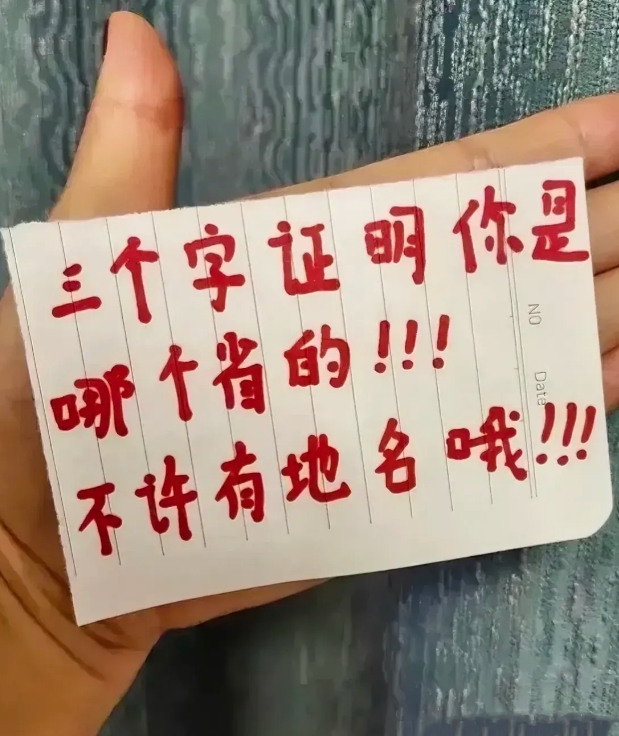 三个字证明你是
哪个省的!!!
不许有地名哦!!!
NO
Date